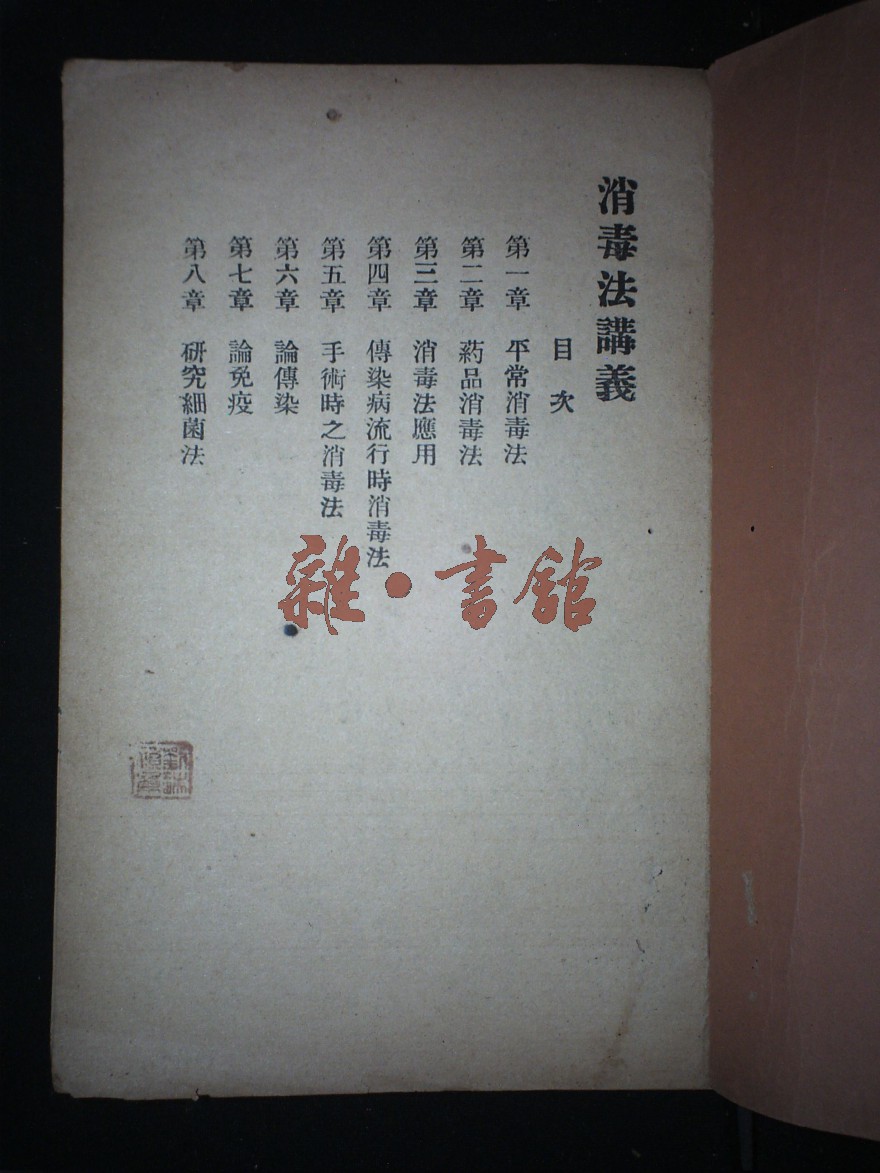 消毒法講義
目次
第一章 平常消毒法
第二章 葯品消毒法
第三章 消毒法應用
第四章 傳染病流行時消毒法
第五章 手術時之消毒法
第六章 論傳染
第七章 論免疫
第八章 研究細菌法
雜·書館